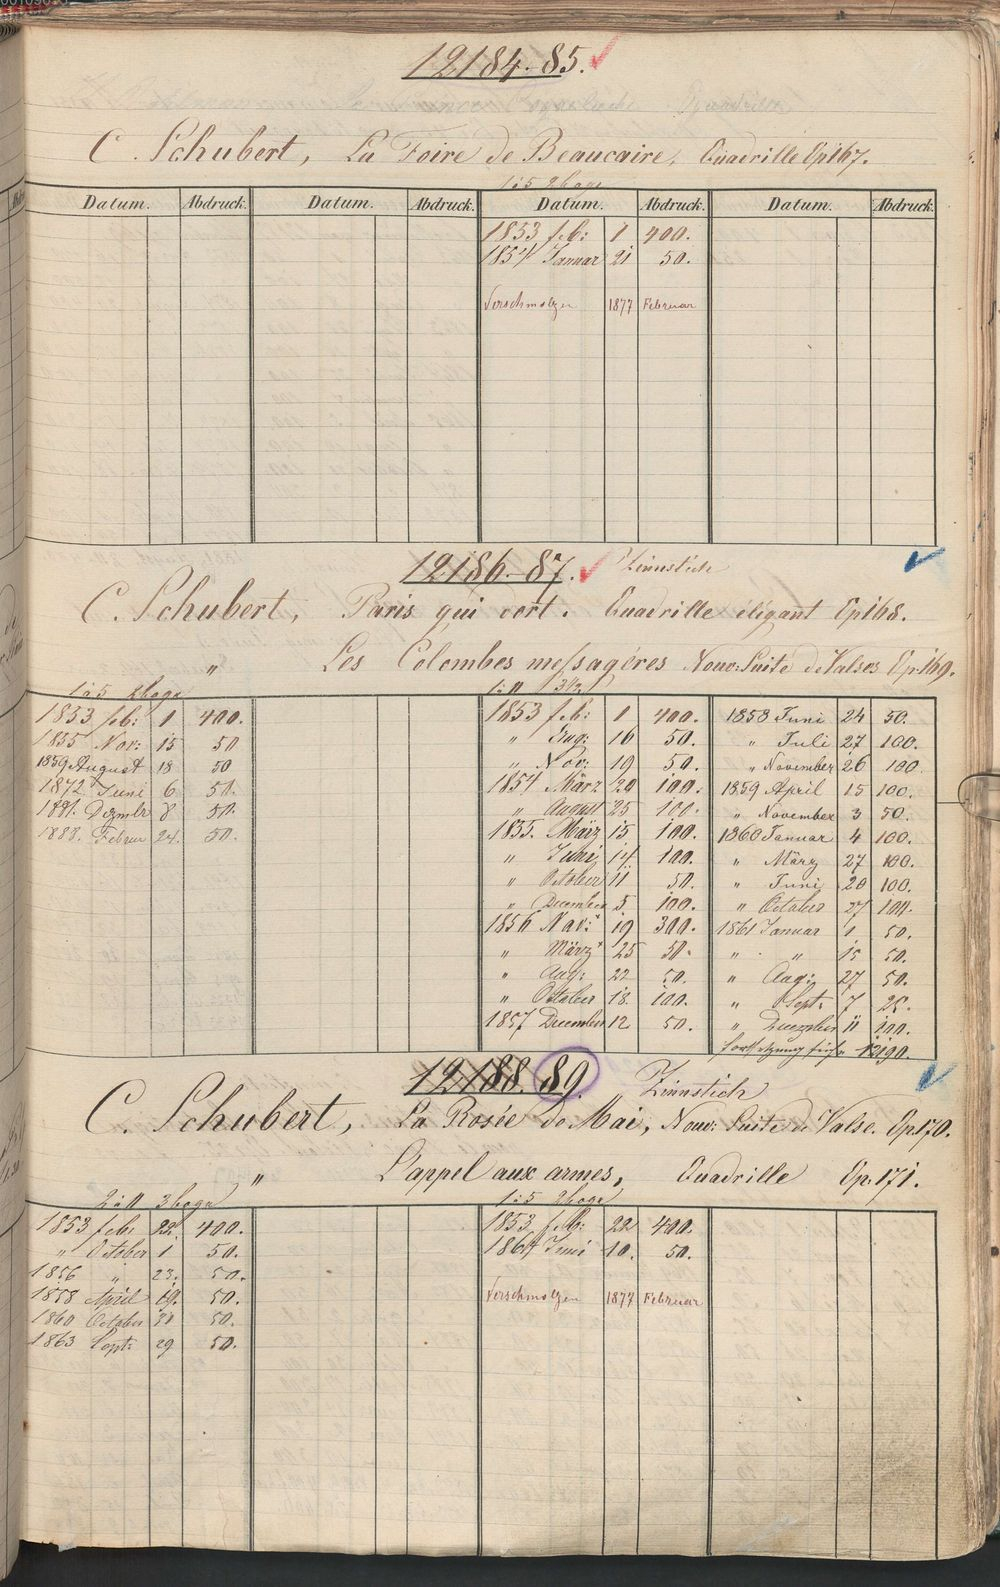 12184-85.
C. Schubert, La Foire de Beaucaire, Quadrille Op 167.
1 à 5 2 boge
Datum. Abdruck. Datum. Abdruck. Datum. Abdruck. Datum. Abdruck.
1853 feb: 1 400.
1854 Januar 21 50.
Verschmolzen 1877 Februar
12186-87. Zinnstich
C. Schubert, Paris qui dort. Quadrille élégant Op 168.
" Les Colombes messagéres Nouv: Suite de Valses Op. 169.
1 à 5 2 boge
1853 feb: 1 400.
1855 Nov: 15 50
1859 August 18 50
1872 Juni 6 50.
1881. Dezmbr 8 50.
1888. Februr 24. 50.
1 à 11 3 1/2
1853 feb: 1 400.
" Aug: 16 50.
" Nov: 19 50.
1854 März 20 100.
" August 25 100.
1855. März 15 100.
" Juni 14 100.
" October 11 50.
" December 5. 100.
1856 Nov: 19 300.
" März 25 50.
" Aug: 22 50.
" October 18. 100.
1857 December 12 50.
1858 Juni 24 50.
" Juli 27 100.
" November 26 100
1859 April 15 100.
" November 3 50.
1860 Januar 4 100.
" März 27 100.
" Juni 20 100.
" October 27 104.
1861 Januar 1. 50.
" " 15 50.
" Aug: 27 50.
" Sept: 7 25.
" Dezember 11 100.
Fortsetzung siehe 12190.
12188. 89. Zinnstich
C. Schubert, La Rosée de Mai, Nouv: Suite de Valse. Op. 170.
" L'appel aux armes, Quadrille Op. 171.
2 à 11 3 boge
1853 feb: 22. 400.
" October 1 50.
1856 " 23. 50.
1858 April 19. 50.
1860 October 30 50.
1863 Sept: 29 50.
1 à 5 2 boge
1853 feb: 22 400.
1867 Juni 10. 50.
Verschmolzen 1877 Februar